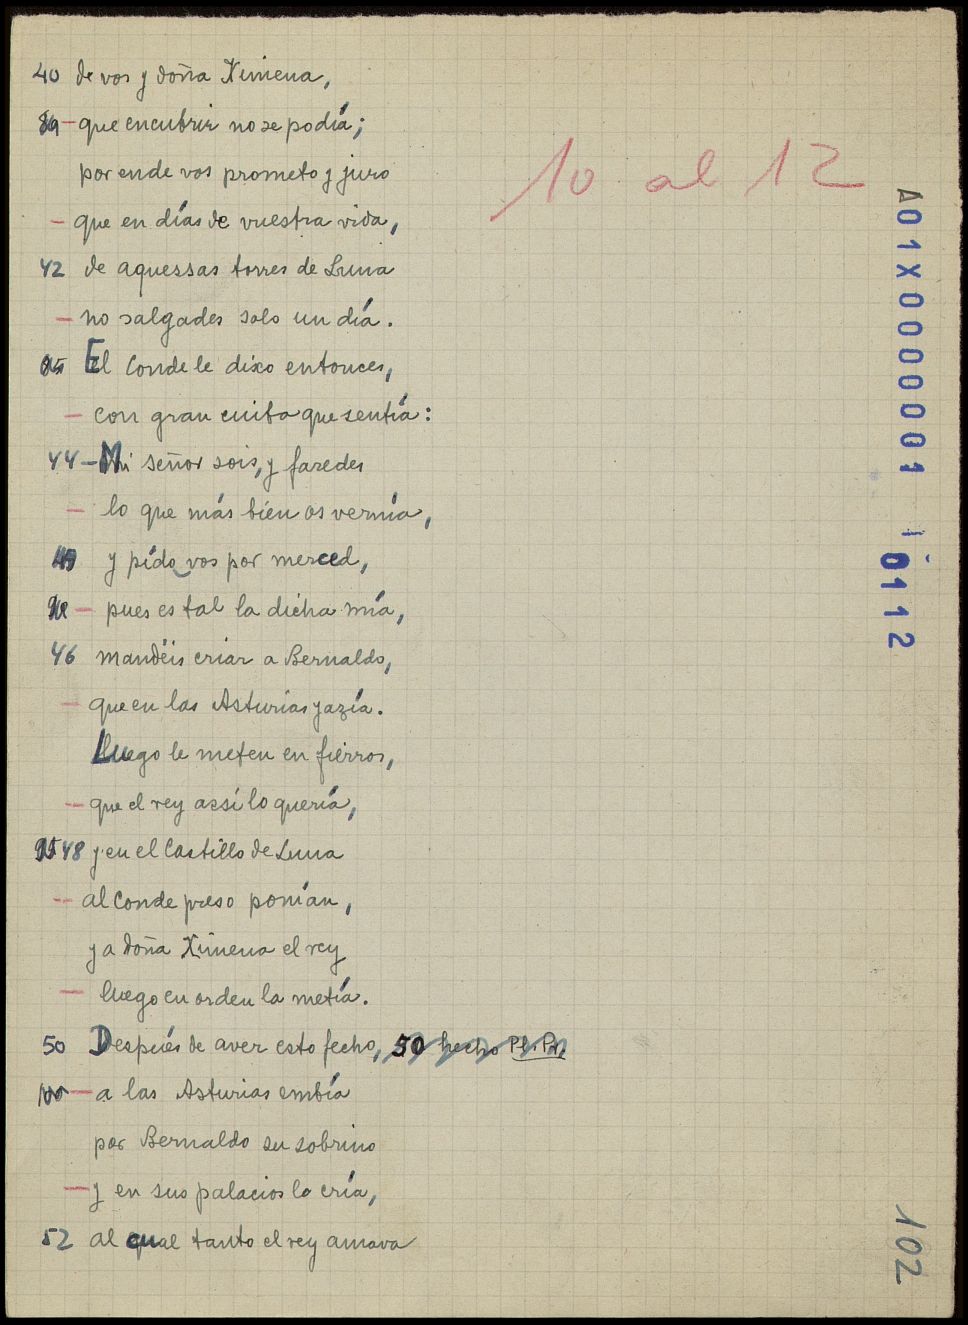 40 de vos y doña Ximena,
— que encubrir no se podía;
por ende vos prometo y juro
— que en días de vuestra vida,
42 de aquessas torres de Luna
— no salgades solo un día.
85 El Conde le dixo entonces,
— con gran cuita que sentía:
44 — Mi señor sois, y faredes
— lo que más bien os vernía,
y pído vos por merced,
— pues es tal la dicha mía,
46 mandéis criar a Bernaldo,
— que en las Asturias yazía.
Luego le meten en fierros,
— que el rey assí lo quería,
95 48 y en el Castillo de Luna
— al Conde preso ponían,
y a doña Ximena el rey
— luego en orden la metía.
50 Después de aver esto fecho, 50 hecho Pl. Pr.
100 — a las Asturias embía
por Bernaldo su sobrino
— y en sus palacios lo cría,
52 al qual tanto el rey amava
10 al 12
A01X0000001 i
0112
102